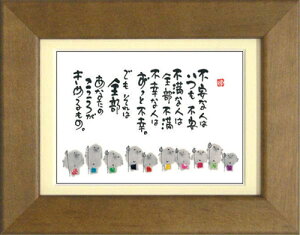 不安な人は
いつも不安
不満な人は
全部不満
不幸な人は
ずっと不幸。
でもそれは
全部
あなたの
こころが
きめるもの。